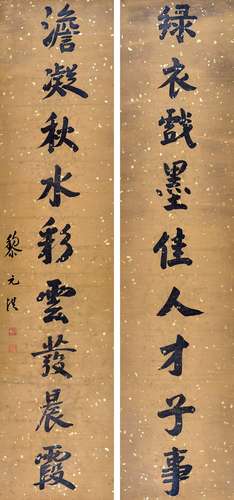 綠衣戲墨佳人才子事
澹凝秋水彩雲發晨霞
黎元洪